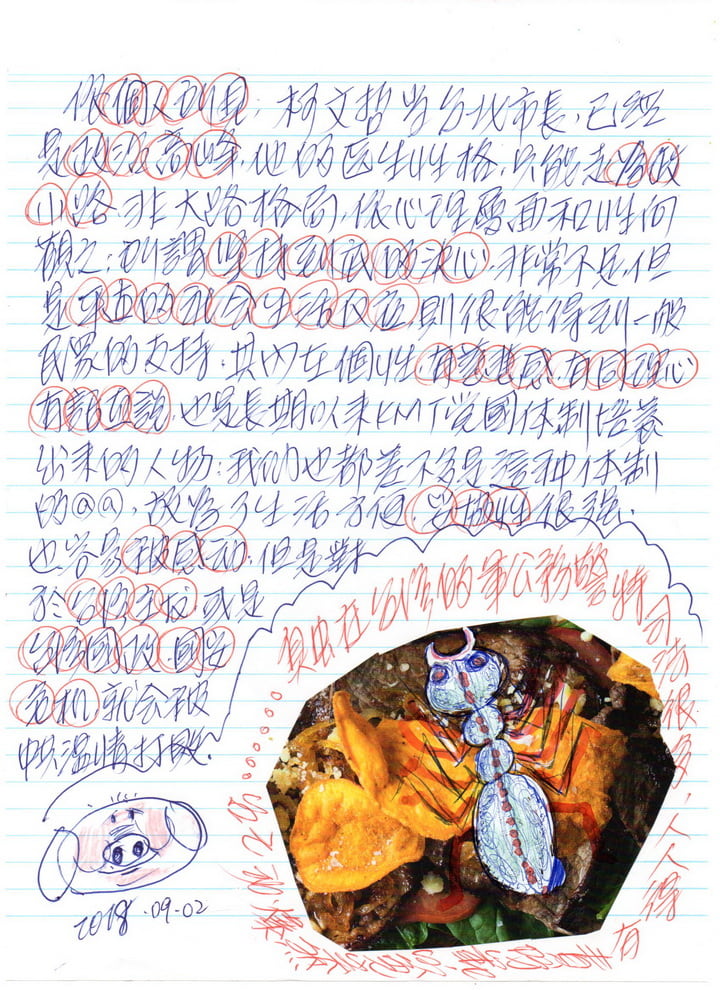 依個人所見,柯文哲当台北市長,已經
是政治高峰,他的医生性格,只能走
小路,非大路格局,依心理層面和性向
觀之,所謂堅持到底的決心,非常不足,但
是平直的社会生活反应,則很能得到一般
民眾的支持,其內在個性,有悲悲感,有同理心
有話直說,也是長期以来KMT党國体制培養
出来的人物,我們也都差不多是這種体制
的@@,故為了生活方便,妥協性很强.
也容易被感动,但是對
於台灣主权或是
台灣國政國安
危机就会被
中共溫情打敗.
2018.09.02
真虫在台灣的軍公務警特司法很多,人人得有